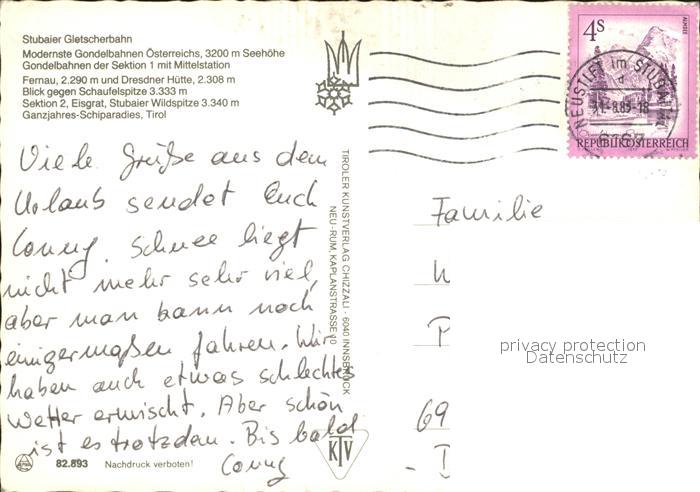 Stubaier Gletscherbahn
Modernste Gondelbahnen Österreichs, 3200 m Seehöhe
Gondelbahnen der Sektion 1 mit Mittelstation
Fernau, 2.290 m und Dresdner Hütte, 2.308 m
Blick gegen Schaufelspitze 3.333 m
Sektion 2, Eisgrat, Stubaier Wildspitze 3.340 m
Ganzjahres-Schiparadies, Tirol
Viele Grüße aus dem
Urlaub sendet Euch
Conny. Schnee liegt
nicht mehr sehr viel,
aber man kann noch
einigermaßen fahren. Wir
haben auch etwas schlechtes
Wetter erwischt. Aber schön
ist es trotzdem. Bis bald
Conny
82.893 Nachdruck verboten!
TIROLER KUNSTVERLAG CHIZZALI · 6040 INNSBRUCK
NEU-RUM, KAPLANSTRASSE 10
KTV
4S
NEUSTIFT im STUBAITAL
REPUBLIK ÖSTERREICH
Familie
W
P
69
privacy protection
Datenschutz